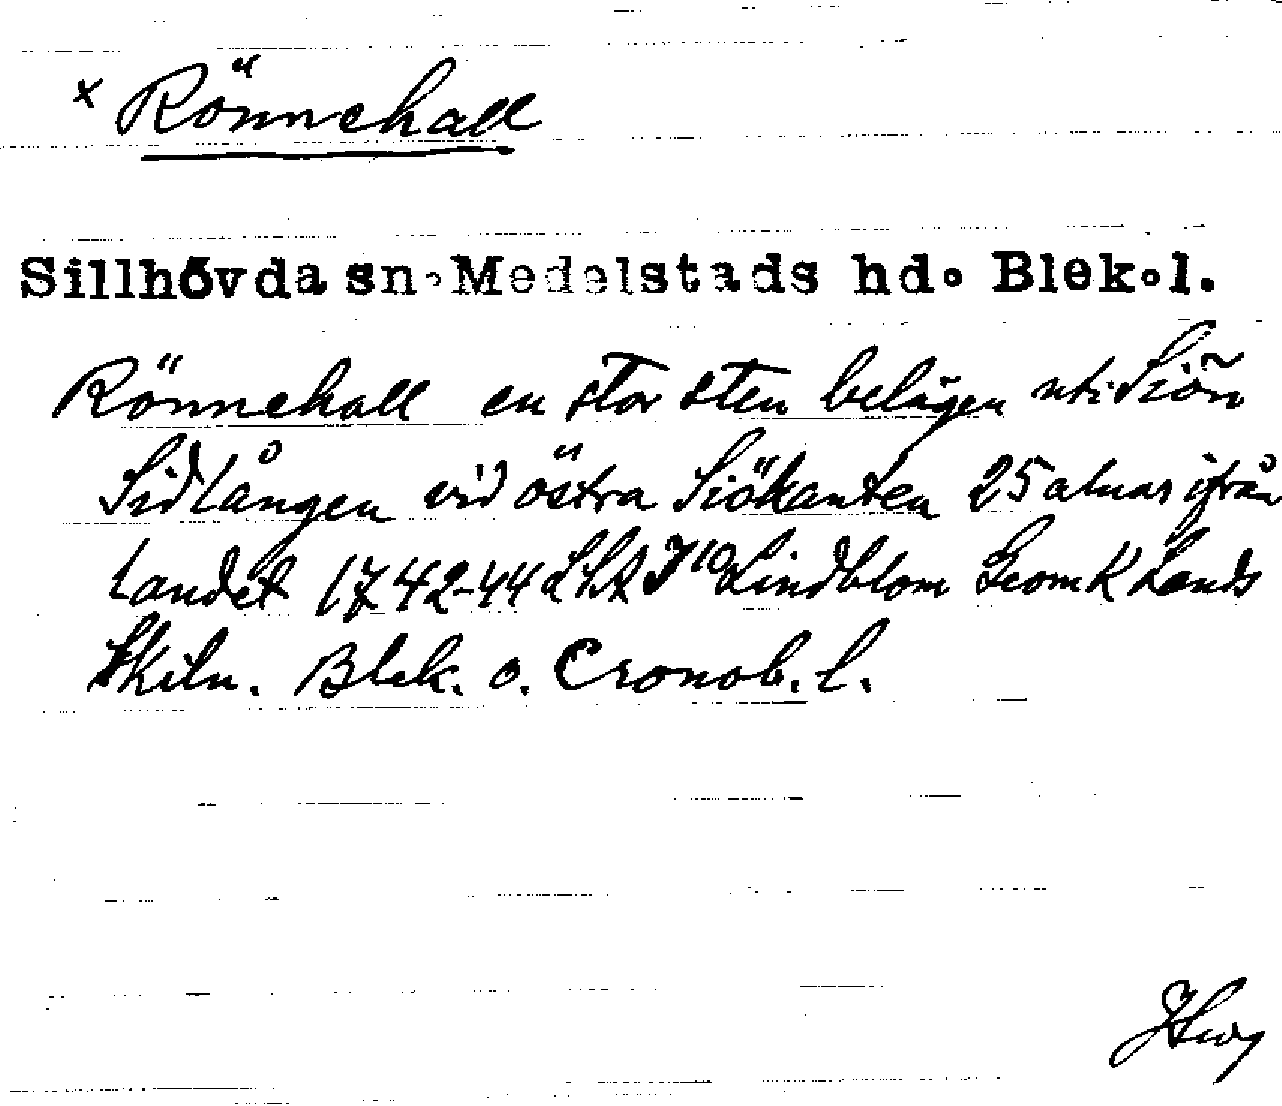 x Rönnehall
Sillhövda sn. Medelstads hd. Blek.l.
Rönnehall en stor sten belägen uti Siön
Sidlången vid östra Siökanten 25 alnar ifrån
landet 1742-44 Lindblom Geom K Lands
Skiln. Blek. o. Cronob. l.